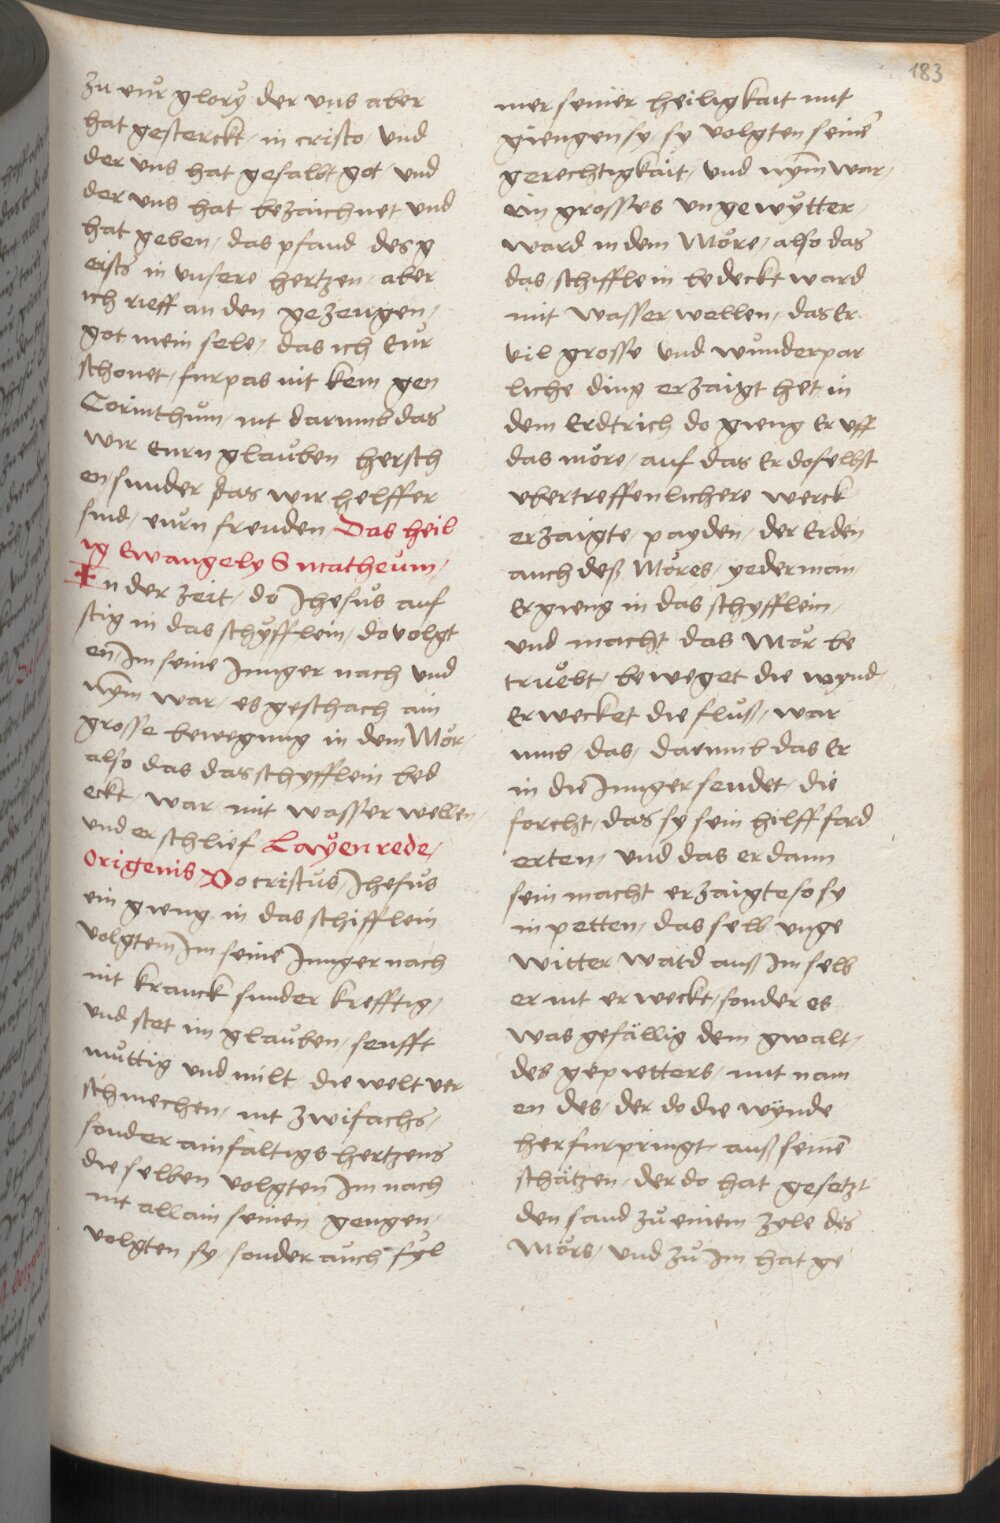 183
zu eur glory der uns aber
hat gesterckt / in cristo / und
der uns hat gesalbt got / und
der uns hat bezaichnet und
hat geben / das pfand des g
eists in unsere hertzen / aber
ich rieff an den gezeugen /
got mein sele / das ich Eur
schonet / furpas nit kem gen
Corinthum / nit darumb das
wir eurn glauben hersch
en sunder das wir helffer
sind / eurn freuden Das heil
ig Ewangely S matheum /
In der zeit / do Jhesus auf
stig in das schyfflein / do volgt
en Im seine Junger nach und
nym war / es geschach ain
grosse bewegung in dem Mör /
also das das schyfflein bed
eckt / war mit wasser wellen /
und er schlief Layen rede /
Origenis Do cristus / Jhesus
ein gieng in das schifflein
volgtem Im seine Junger nach
nit kranck sunder krefftig /
und stet im glauben / senfft
muttig und milt die welt ver
schmechen / nit zwifachs /
sonder ainfaltigs hertzens
die selben volgten Im nach
nit allain seinen gengen /
volgten sy / sonder auch fyl
mer seiner heiligkait mit
giengen sy / sy volgten seinē
gerechtigkait / und nym war /
ein grosses ungewytter /
ward in dem Möre / also das
das schifflein bedeckt ward
mit wasser wellen / das Er
vil grosse und wunderpar
liche ding erzaigt het in
dem Erdtrich do gieng Er uff
das möre / auf das Er doselbst
ubertreffenlichere werck
erzaigte / payden / der Erden
auch deß Möres / yederman
Er gieng in das schyfflein /
und macht das Mör be
truebt / beweget die wynd /
Er wecket die fluß / war
umb / das / darumb das Er
in die Junger sendet / die
forcht / das sy sein hilff ford
erten / und das er dann
sein macht erzaigte so sy
in petten / das selb unge
witter ward auß Im selb
er nit erweckt / sonder es
was gefällig dem gwalt /
des gepietters / mit nam
en des / der do die wynde
herfurpringt auß seinē
schätzen / der do hat gesetzt
den sand zu einem zyle des
Mörs / und zu Im hat ge